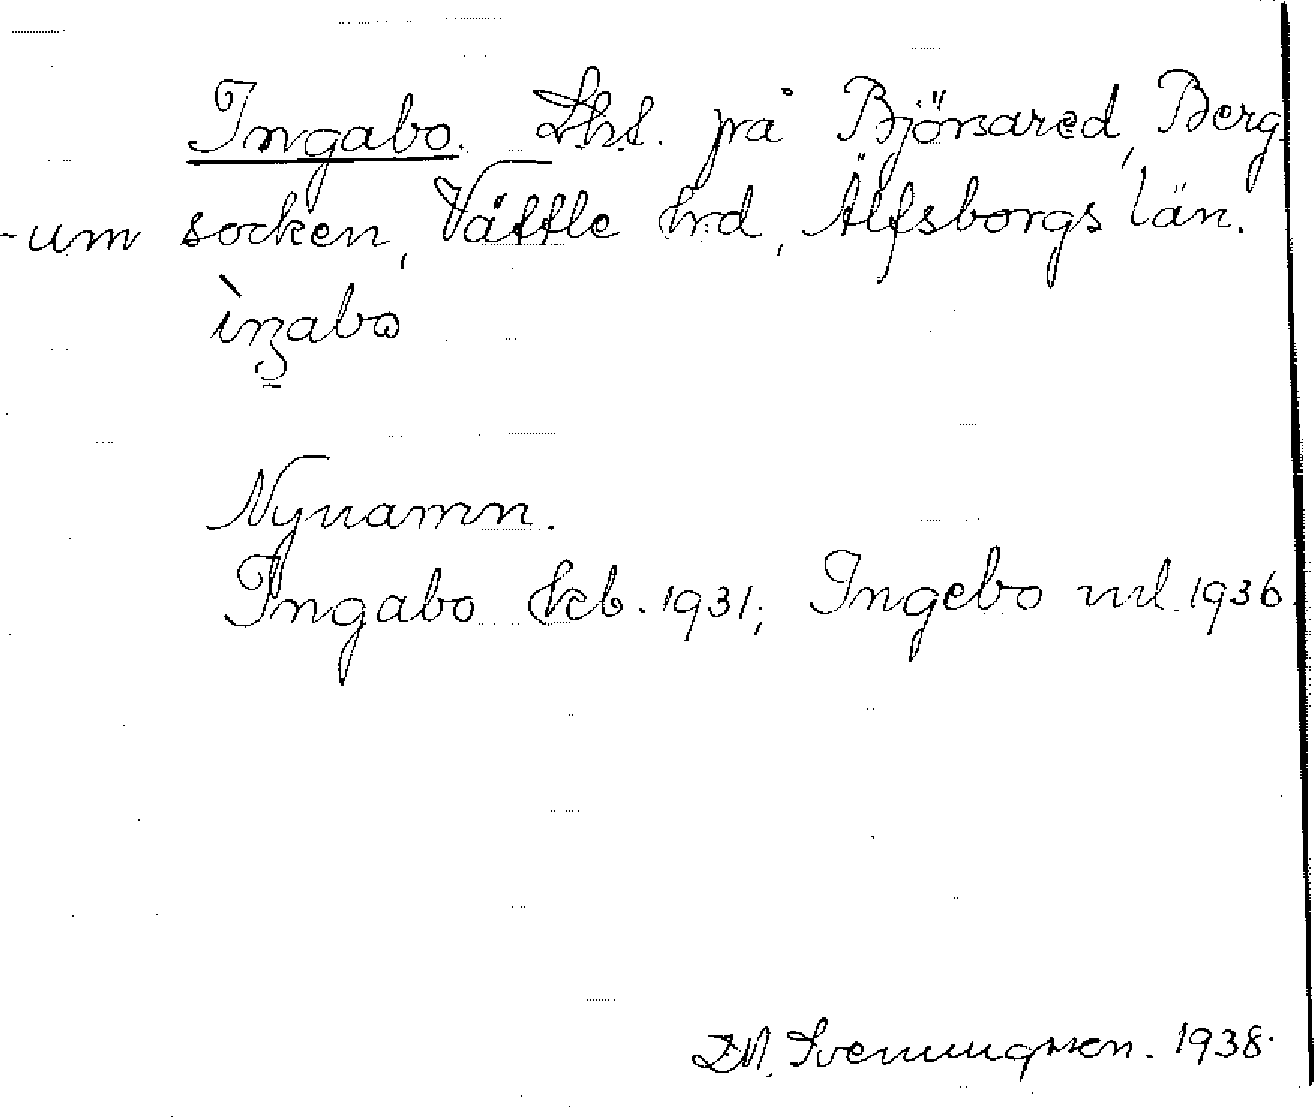 Ingabo. Lht. på Björsared, Berg-
-um socken, Vättle hrd, Älfsborgs län.
ìŋabo
Nynamn.
Ingabo kcb. 1931; Ingebo ml. 1936.
Svenungsson. 1938.